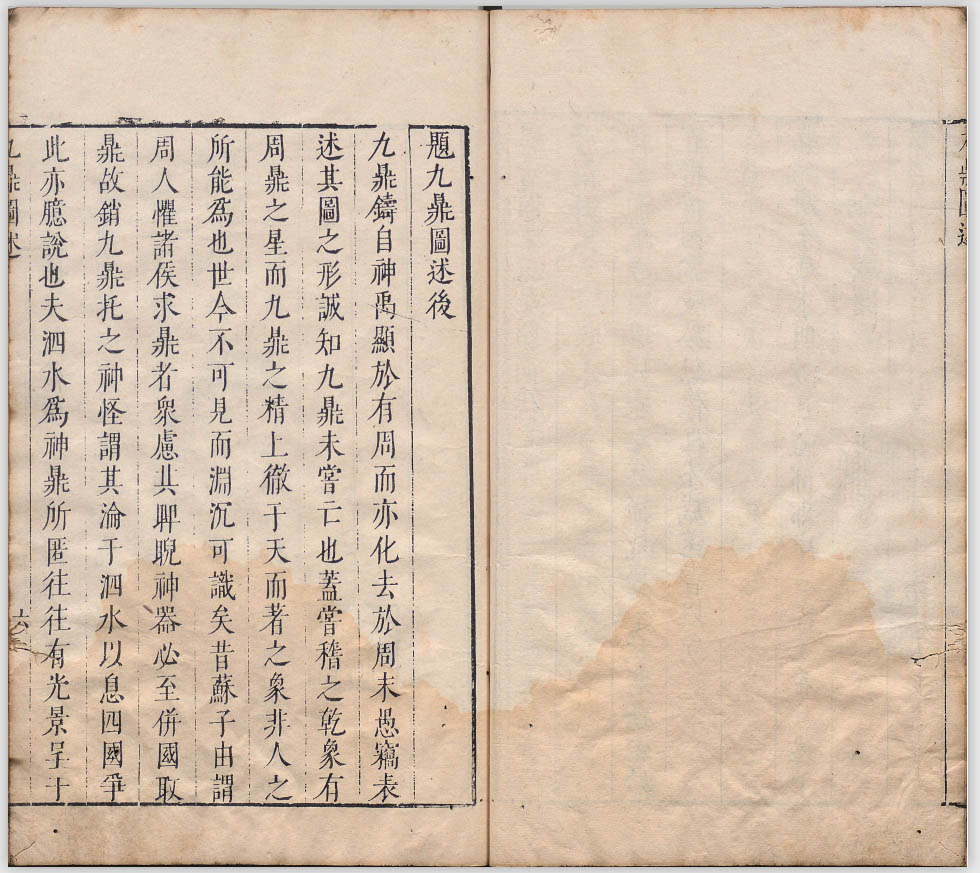 題九鼎圖述後
九鼎鑄自神禹顯於有周而亦化去於周末愚竊表
述其圖之形誠知九鼎未嘗亡也蓋嘗稽之乾象有
周鼎之星而九鼎之精上徹于天而著之象非人之
所能為也世今不可見而淵沉可識矣昔蘇子由謂
周人懼諸侯求鼎者衆慮其睥睨神器必至併國取
鼎故銷九鼎托之神怪謂其淪于泗水以息四國爭
此亦臆說也夫泗水為神鼎所匿往往有光景呈于
九鼎圖述
六